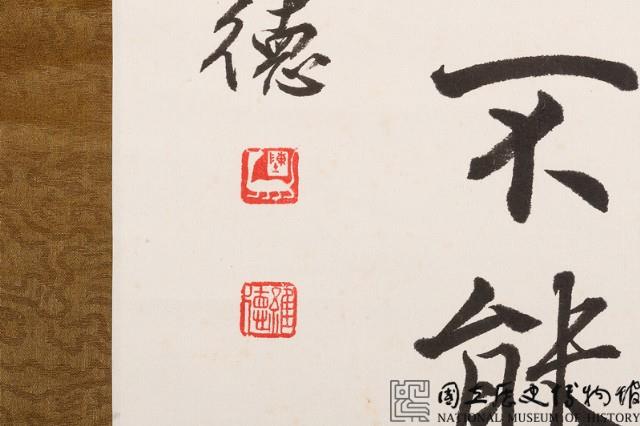 不能
德
陳
維德
國立歷史博物館
NATIONAL MUSEUM OF HISTORY